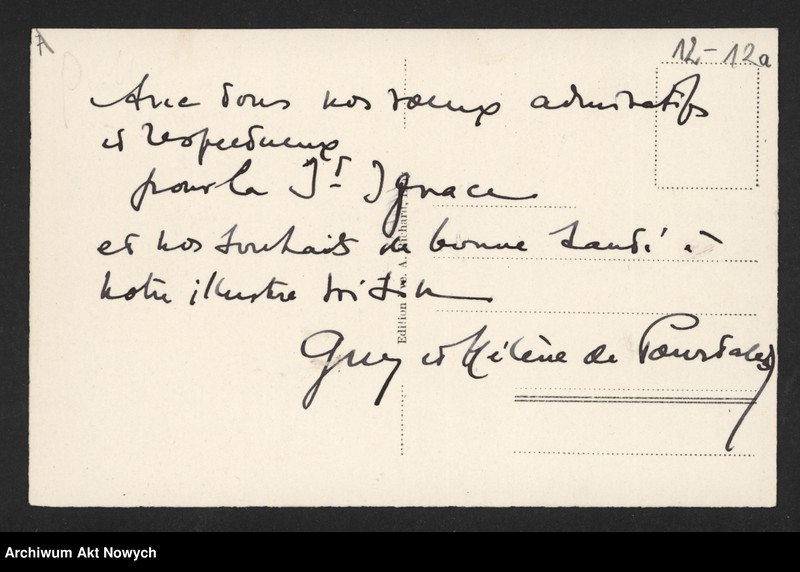 12-12a
Avec tous nos vœux admiratifs
et respectueux
pour la St Ignace
et nos souhaits de bonne santé à
notre illustre voisin
Guy et Hélène de Pourtalès
Edition Vve. A.
Archiwum Akt Nowych